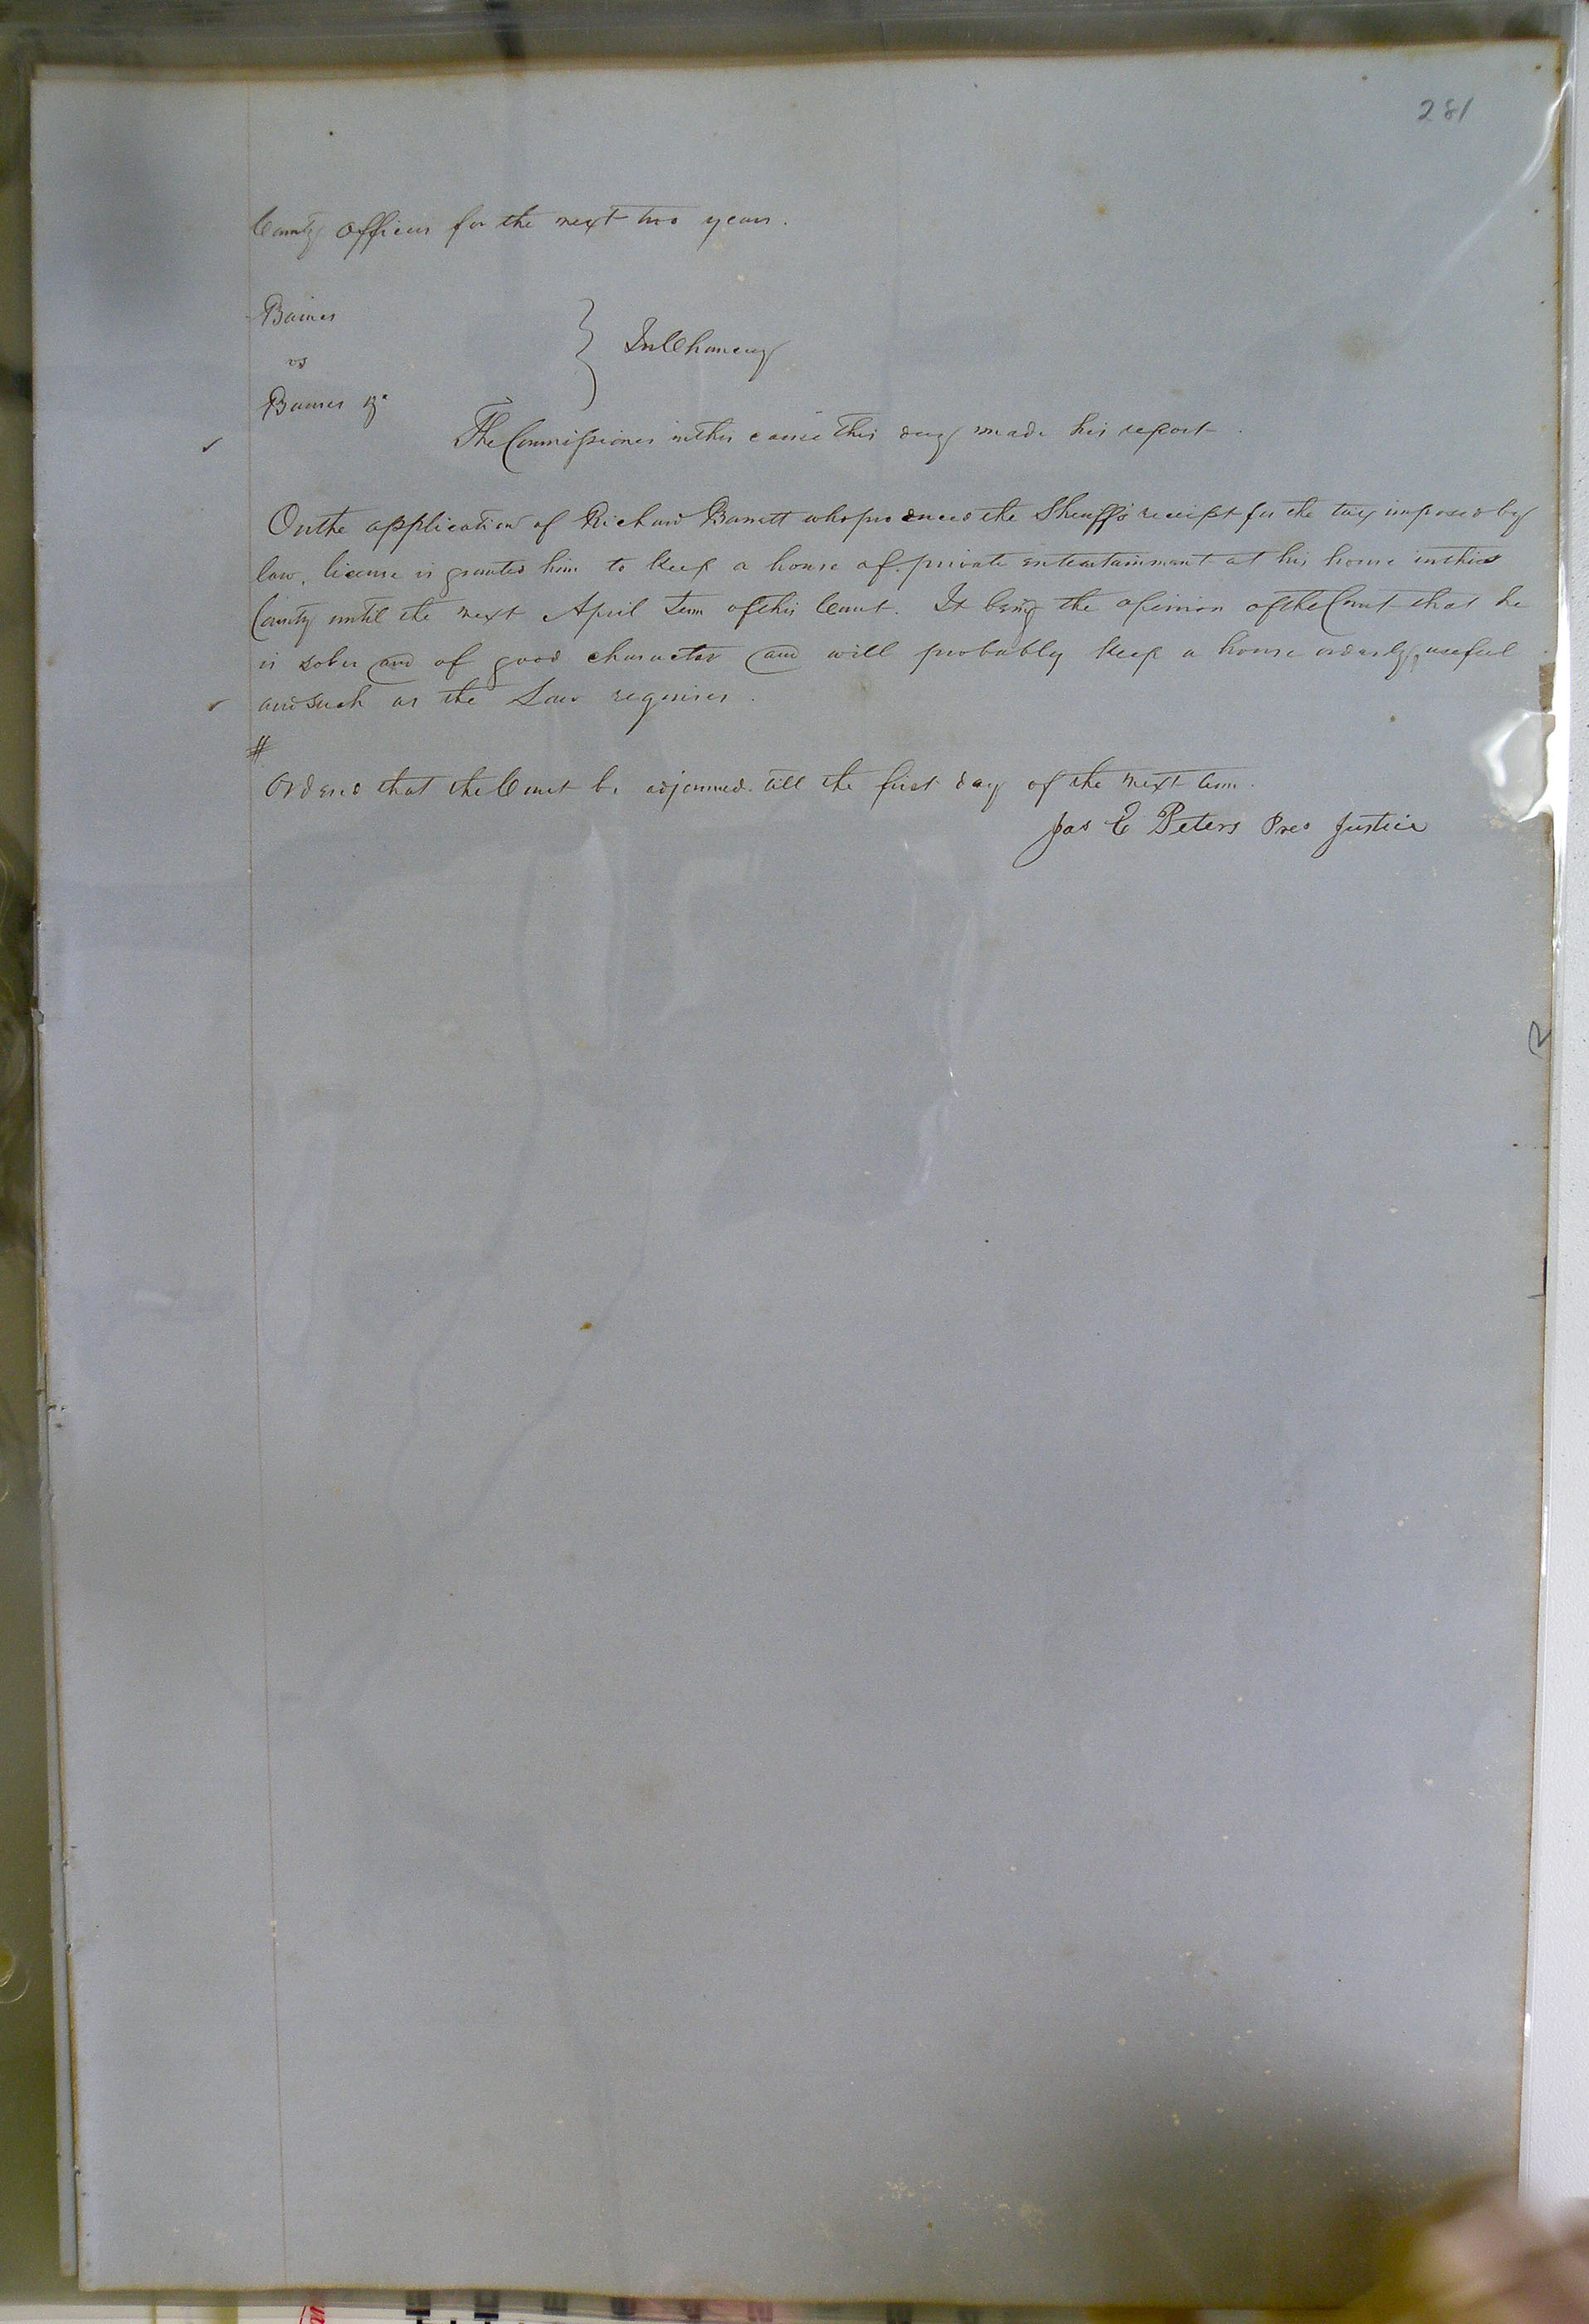 281
County Officers for the next two years.
Baines
vs } In Chancery
Baines &c
The Commissioner in this cause this day made his report.
On the application of Richard Barrett who produced the Sheriff's receipt for the tax imposed by
law, license is granted him to keep a house of private entertainment at his house in this
County until the next April Term of this Court. It being the opinion of the Court that he
is sober and of good character and will probably keep a house orderly, useful
and such as the Law requires.
#
Ordered that the Court be adjourned till the first day of the next term.
Jas E Peters Pres Justice